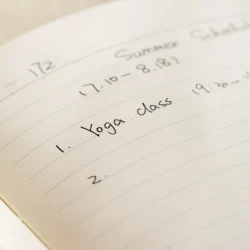 172
Summer Schedu
(7.10 - 8.18)
1. Yoga class (9:30 -
2.